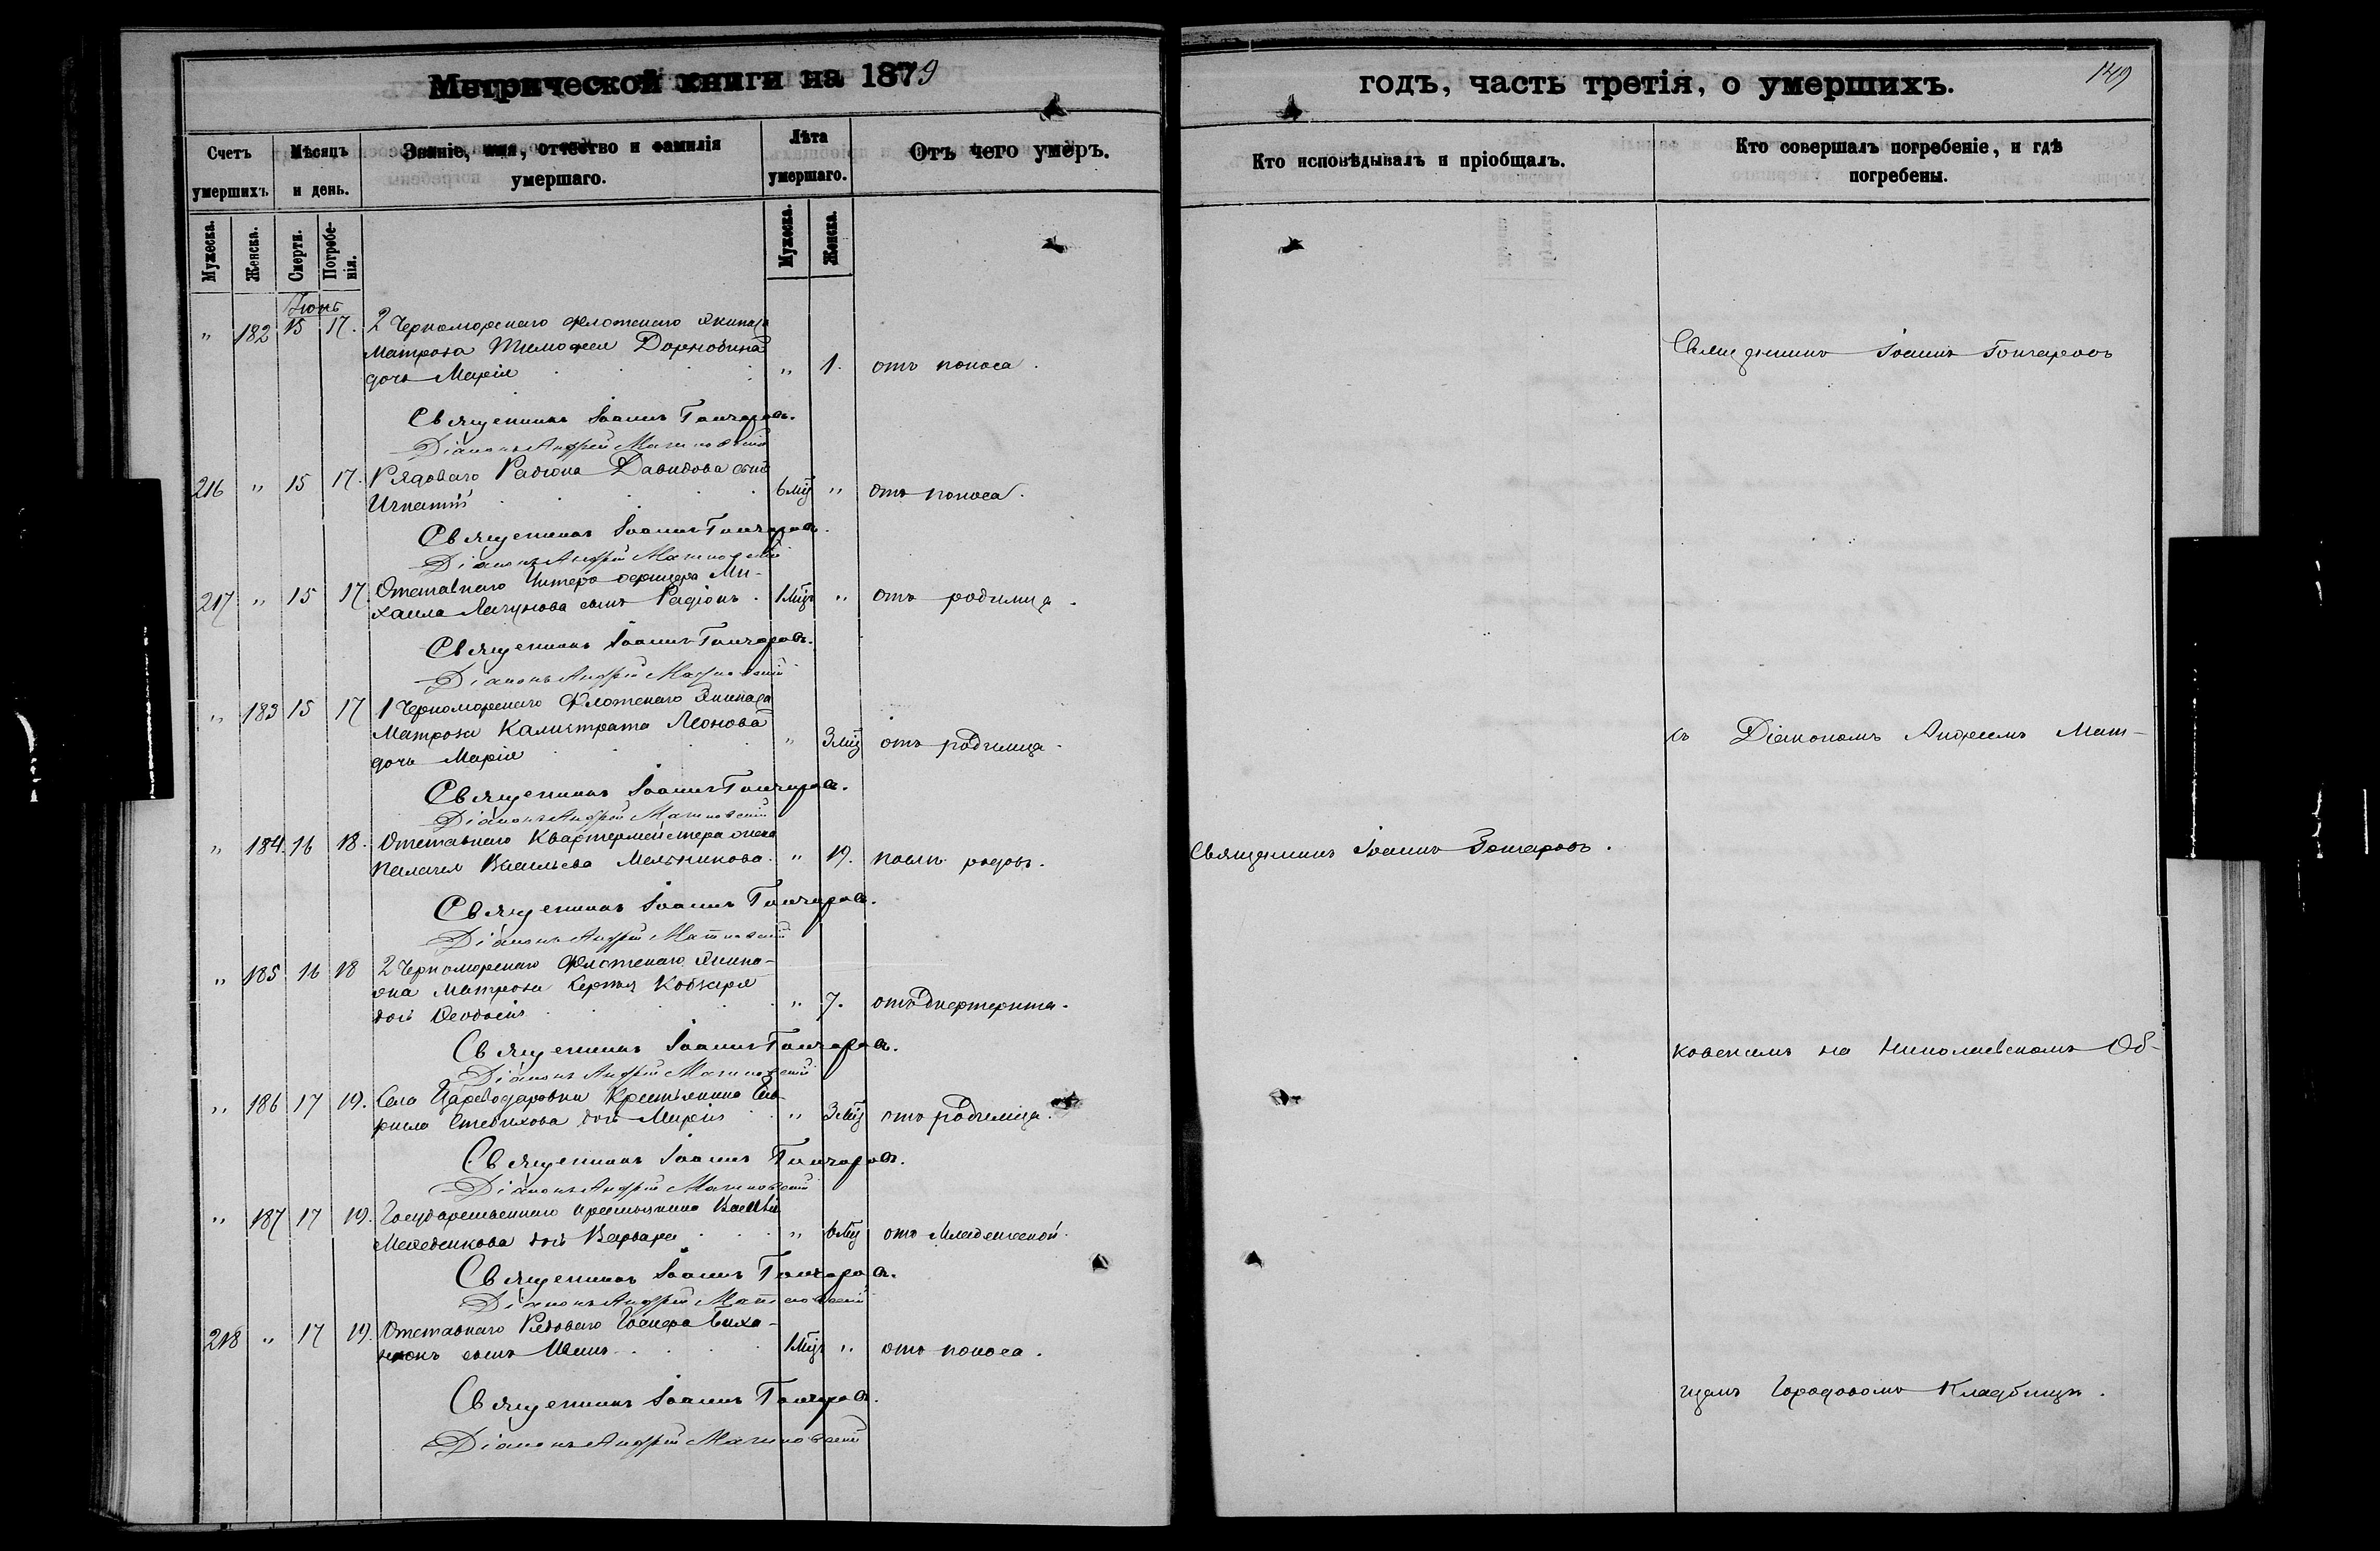 Метрической книги на 1879
годъ, часть третія, о умершихъ.
149
Счетъ умершихъ
Мѣсяцъ и день.
Званіе, имя, отчество и фамилія умершаго.
Лѣта умершаго.
Отъ чего умеръ.
Кто исповѣдывалъ и пріобщалъ.
Кто совершалъ погребеніе, и гдѣ погребены.
Мужеска.
Женска.
Смерти.
Погребенія.
Мужеска.
Женска.
Іюнь
" 182 15 17. 2 Черноморскаго флотскаго экипажа
Матроса Тимофея
дочь Марія " 1. отъ поноса.
Священникъ Іоаннъ Гончаровъ
Священникъ Іоаннъ Гончаровъ.
Діаконъ Андрей Матковскій
216 " 15 17. Рядоваго Радіона Давидова сынъ
Игнатій 6 мц " отъ поноса.
Священникъ Іоаннъ Гончаровъ.
Діаконъ Андрей Матковскій
217 " 15 17 Отставнаго Унтеръ офицера Ми-
хаила сынъ Радіонъ. 1 мцъ " отъ родимца.
Священникъ Іоаннъ Гончаровъ.
Діаконъ Андрей Матковскій
" 183 15 17 1 Черноморскаго Флотскаго Экипажа
Матроса Калистрата Леонова
дочь Марія " 3 мц отъ родимца.
съ Діакономъ Андреемъ Мат-
Священникъ Іоаннъ Гончаровъ.
Діаконъ Андрей Матковскій
" 184. 16 18. Отставнаго Квартермейстера жена
Пелагея Васильева Мельникова. " 19. послѣ родовъ.
Священникъ Іоаннъ Гончаровъ.
Священникъ Іоаннъ Гончаровъ.
Діаконъ Андрей Матковскій
" 185 16 18 2 Черноморскаго Флотскаго Экипа-
жа Матроса Сергѣя Кобзаря
дочь Феодосія " 7. отъ дифтерита.
Священникъ Іоаннъ Гончаровъ.
ковскимъ на Николаевскомъ Об-
Діаконъ Андрей Матковскій
" 186 17 19. Села Цареводаровки Крестьянина
дочь Марія " 3 мц отъ родимца.
Священникъ Іоаннъ Гончаровъ.
Діаконъ Андрей Матковскій
" 187 17 19. Государственнаго крестьянина Василія
дочь Варвара " 6 мц отъ младенческой.
Священникъ Іоаннъ Гончаровъ.
Діаконъ Андрей Матковскій
218 " 17 19. Отставнаго Рядоваго
сынъ 1 мцъ " отъ поноса.
Священникъ Іоаннъ Гончаровъ.
щемъ Городовомъ Кладбищѣ.
Діаконъ Андрей Матковскій